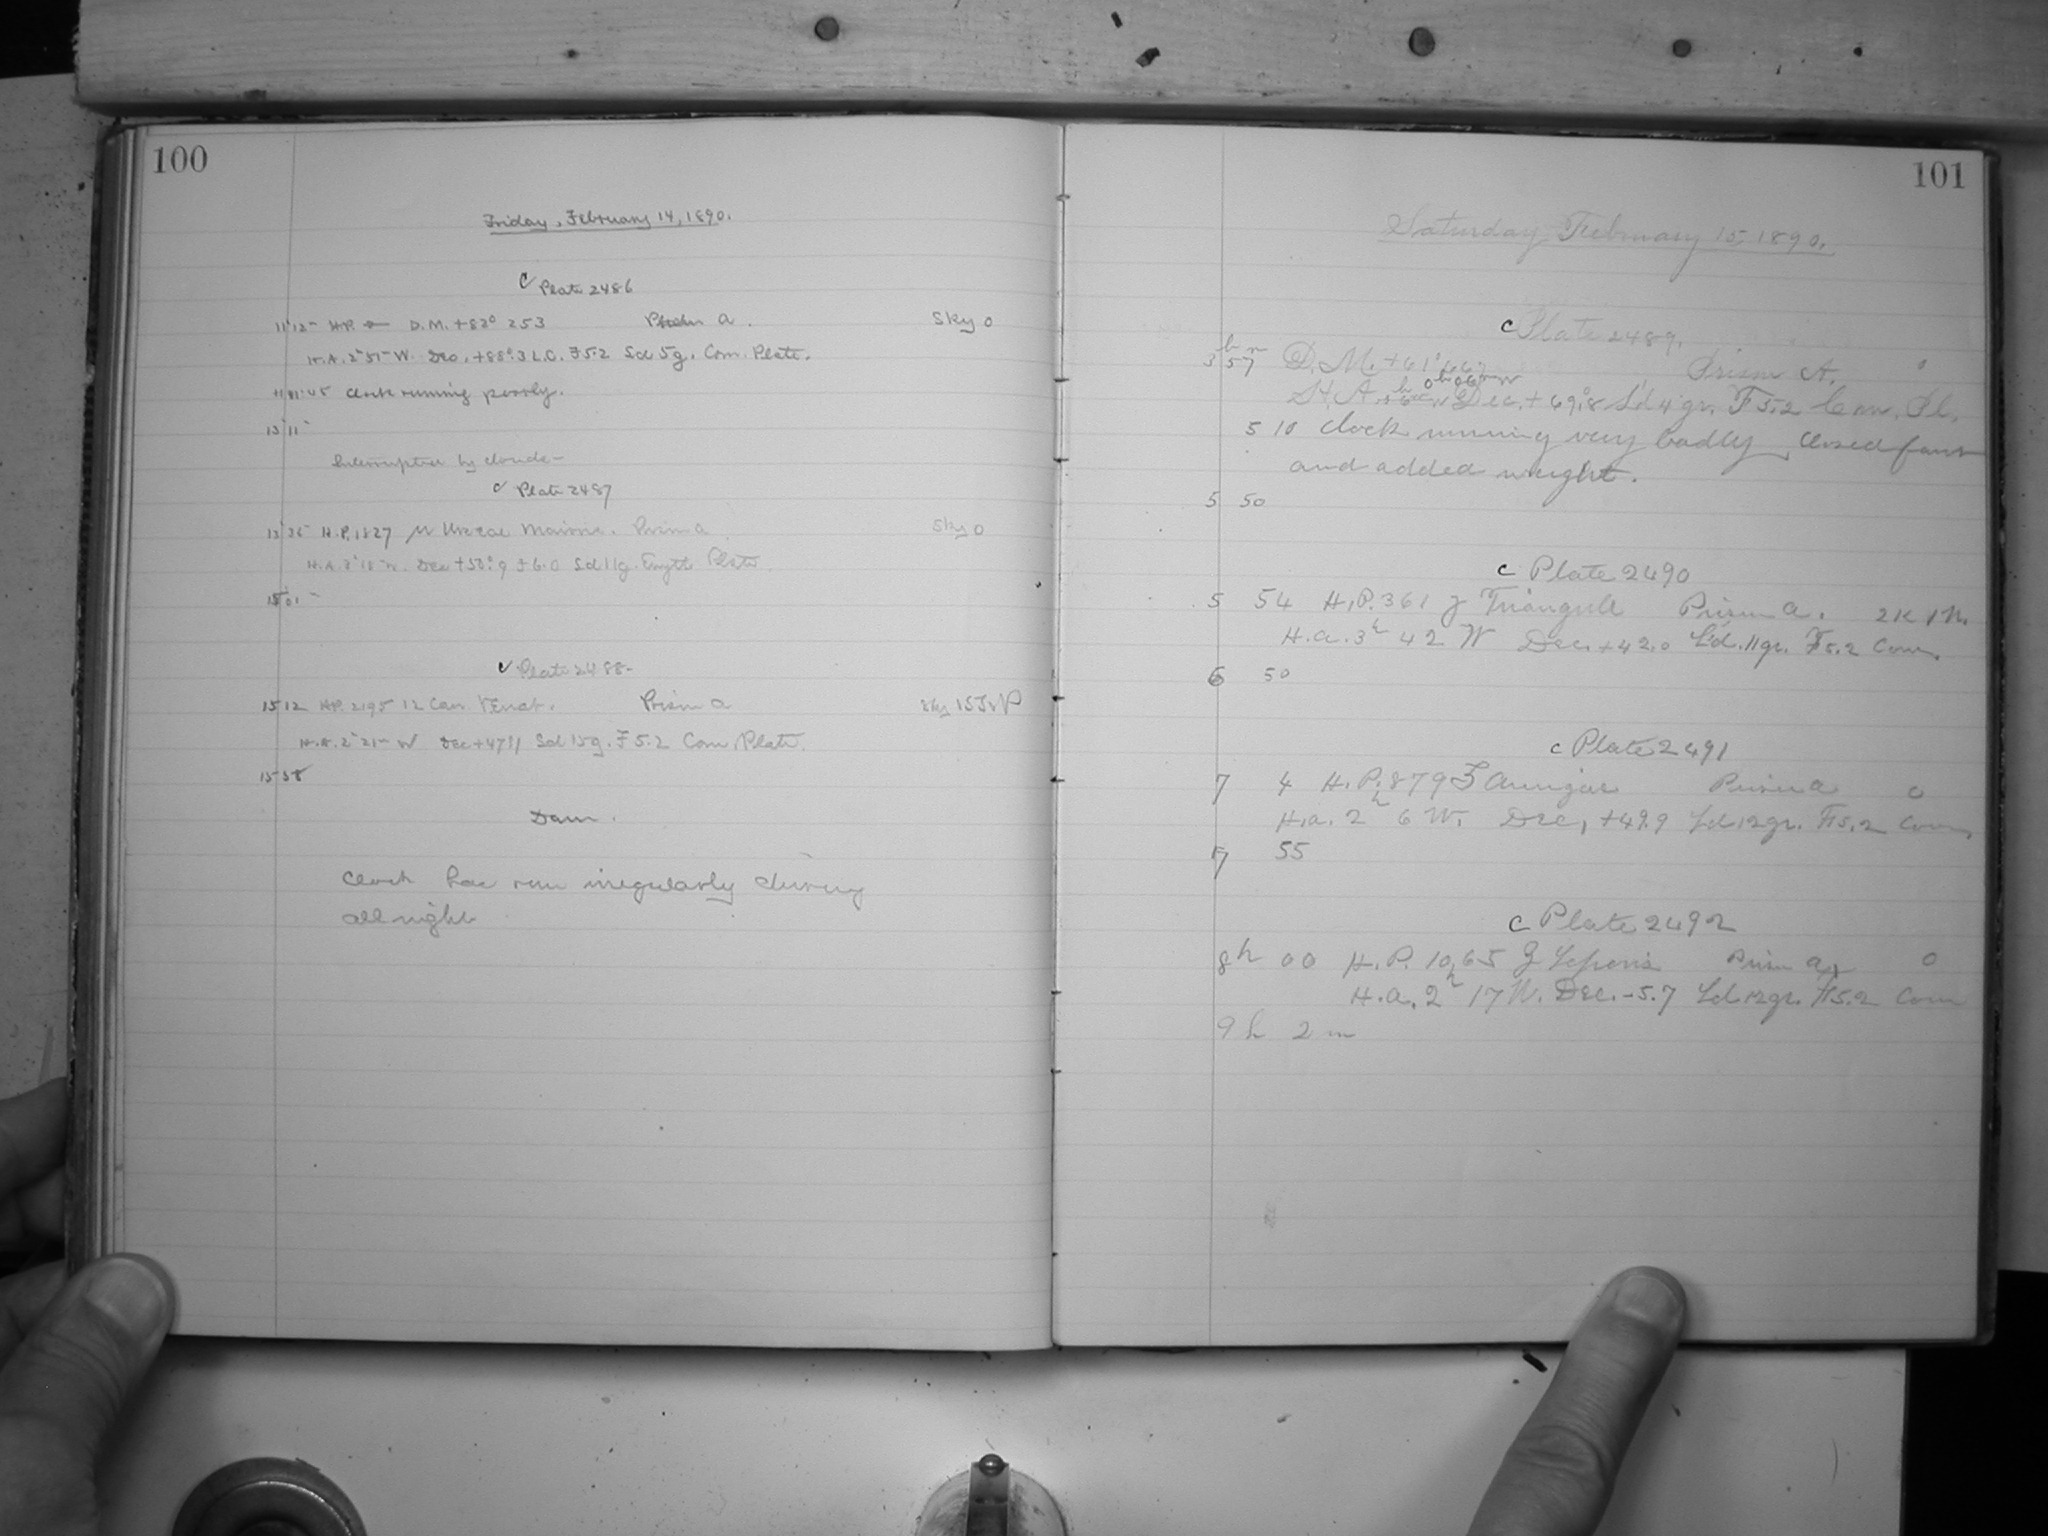 100
Friday, February 14, 1890.
C Plate 2486
11 12 H.P. D.M. +82° 253 Prism a. Sky 0
H.A. 2 51 W. Dec. +88°.3 L.C. F5.2 Sd 5g. Com. Plate.
Clock running poorly.
13 11
Interruption by clouds
C Plate 2487
H.P. 1827 µ Ursae Majoris. Prism a Sky 0
H.A. 2 18 W. Dec +50°.9 F 6.0 Sd 11g. Plate
15 01
C Plate 2488
15 12 H.P. 2195 12 Can. Venat. Prism a Sky
H.A. 2 21 W Dec +47°.1 Sd 15g. F 5.2 Com Plate.
15 58
Dawn.
Clock has run irregularly during
all night
101
Saturday February 15, 1890.
C Plate 2489.
3 h 57 m D. M. +61° Prism A. 0
H. A. Dec. + 69°.8 S'd 4 gr. F 5.2 Com. Pl.
5 10 clock running very badly, closed fans
and added weight.
5 50
C Plate 2490
5 54 H.P. 361 γ Trianguli Prism a. 2K 1N.
H.a. 3h 42 W Dec. +42.0 S'd. 11gr. F5.2 Com.
6 50
C Plate 2491
7 4 H.P. 879 ζ Aurigae Prism a 0
H.a. 2h 6 W. Dec, +49.9 Sd 12gr. F5.2 Com,
7 55
C Plate 2492
8h 00 H.P. 1065 Leporis Prism a, 0
H.a. 2h 17 W. Dec. -5.7 Sd 12gr. F5.2 Com
9 h 2 m